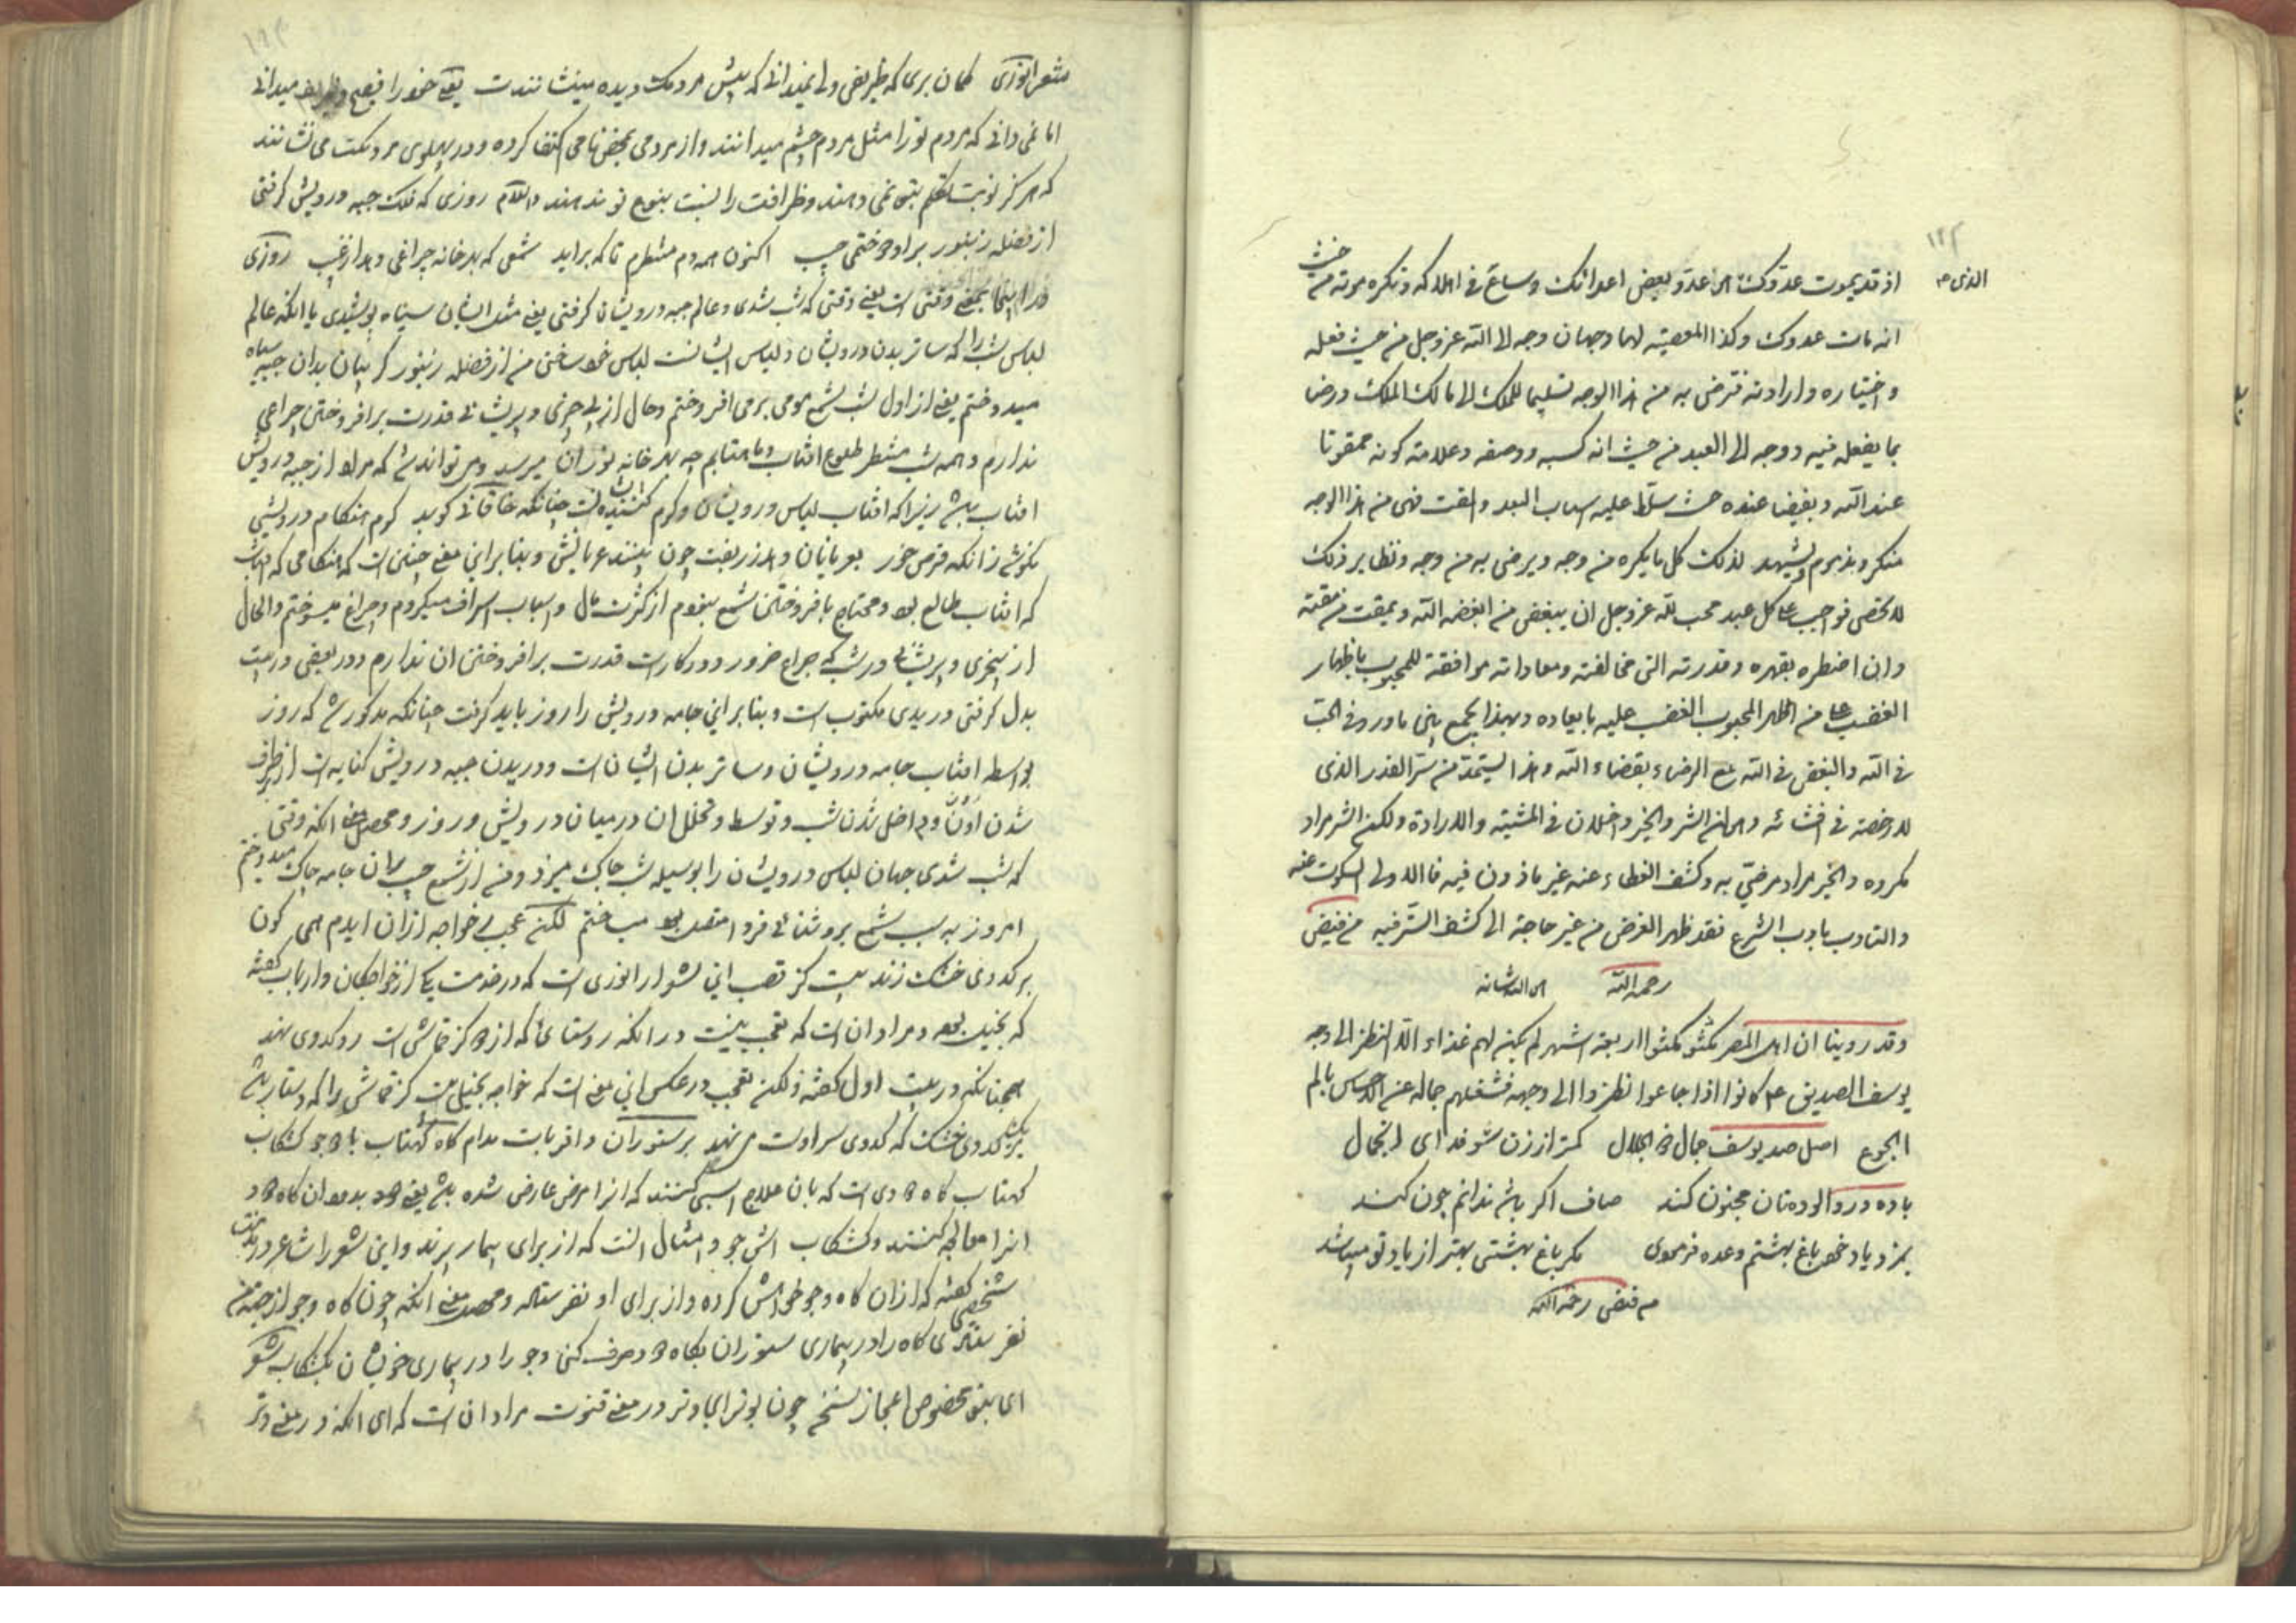 ۱۹۳
الذی هو
اذ قد یموت عدوک الذی هو عدو بعض اعدائک وساع فی اهلاکه وتکره موته من حیث
انه مات عدوک وکذا المعصیة لها وجهان وجه الی الله عز وجل من حیث فعله
واختیاره وارادته فترضی به من هذا الوجه تسلیما للملک الی مالک الملک ورضا
بما یفعله فیه ووجه الی العبد من حیث انه کسبه ووصفه وعلامة کونه ممقوتا
عند الله وبغیضا عنده حیث سلط علیه اسباب البعد والمقت فهی من هذا الوجه
منکر ومذموم ولیشهد لذلک کل ما یکره من وجه ویرضی به من وجه ونظایر ذلک
لا تحصی فواجب علی کل عبد محب لله عز وجل ان یبغض من ابغضه الله ویمقت من مقته
وان اضطره بقهره وقدرته الی مخالفته ومعاداته موافقة للمحبوب باظهار
الغضب علی من اظهر المحبوب الغضب علیه بابعاده وبهذا یجمع بین ما ورد فی الحب
فی الله والبغض فی الله مع الرضاء بقضاء الله وهذا یستمد من سر القدر الذی
لا رخصة فی افشائه وهو ان الشر والخیر داخلان فی المشیة والارادة ولکن الشر مراد
مکروه والخیر مراد مرضی به وکشف الغطاء عنه غیر ماذون فیه فالاولی السکوت عنه
والتادب بادب الشرع فقد ظهر الغرض من غیر حاجة الی کشف السر فیه من فیض
رحمه الله
وقد روینا ان اهل المصر مکثوا اربعة اشهر لم یکن لهم غذاء الا النظر الی وجه
یوسف الصدیق ع کانوا اذا جاعوا نظروا الی وجهه فشغلهم جماله عن الاحساس بالم
الجوع اصل صد یوسف جمال ذو الجلال کمتر از زن شو فدای انجمال
باده درد الودمتان مجنون کند صاف اکر باشد ندانم چون کند
بمزد یاد خود باغ بهشتم وعده فرمودی مکر باغ بهشتی بهتر از یاد تو میباشد
من فیض رحمه الله
۱۹۳
شعر انوری کمان بری که ظریفی ولی نمیدانی که پیش مردمک دیده مینشانندت یعنی خود را فصیح وظریف میدانی
اما نمی دانی که مردم تو را مثل مردم چشم میدانند واز مردمی بمحض نامی اکتفا کرده ودر پهلوی مردمکت می نشانند
که هرکز نوبت تکلم بتو نمی دهند وظرافت را نسبت بنوع تو ندهند والسلام روزی که فلک جبه درویش کرفتی
از فضله زنبور برو دوختمی جیب اکنون همه دم منتظرم تا که براید شمعی که بهر خانه چراغی دهد از غیب روزی
در اینجا بمعنی وقتی است یعنی وقتی که شب شدی وعالم جبه درویشان کرفتی یعنی مثل ایشان سیاه پوشیدی یا انکه عالم
لباس شب را که ساتر بدن درویشان ولباس ایشانست لباس خود ساختی من از فضله زنبور کریبان بدان جبه سیاه
میدوختم یعنی از اول شب شمع مومی برمی افروختم وحال از بی چیزی وپریشانی قدرت برافروختن چراغی
ندارم وهمه شب منتظر طلوع افتاب وماهتابم چه بهر خانه نوزان میرسد ومی تواند شد که مراد از جبه درویش
افتاب باشد زیرا که افتاب لباس درویشان وکرم کننده ایشانست چنانکه خاقانی کوید کرم هنکام درویشی
نکوشد زانکه قرص خور بعریانان دهد زربفت چون بینند عریانش وبنابراین معنی چنین است که هنکامی که افتاب
که افتاب طالع بود ومحتاج بافروختن شمع نبودم از کثرت مال واسباب اسراف میکردم وچراغ میسوختم والحال
از بیچیزی وپریشانی در شب که چراغ ضرور ودرکارست قدرت برافروختن ان ندارم ودر بعضی در بیت
بدل کرفتی دریدی مکتوب است وبنابراین جامه درویش را روز باید کرفت چنانکه مذکور شد که روز
بواسطه افتاب جامه درویشان وساتر بدن ایشان است ودریدن جبه درویش کنایه است از طرف
شدن اون وداخل شدن شب وتوسط وتخلل ان در میان درویش وروز ومحصل معنی انکه وقتی
که شب شدی جهان لباس درویشان را بوسیله شب چاک میزد ومن از شمع جیب بران جامه چاک میدوختم
امروز به سبب شمع بروشنائی فردا مقصد میساختم لکن عجبی خواجه ازان ایدم همی کون
بر کدوی خشک زند بیت کز قصب این شعر از انوری است که در خدمت یکی از خواجکان وارباب کفته
که بخیل بود ومراد ان است که تعجب نیست در انکه روستائی که از کز قماش است رو کدوی نهد
همچنانکه در بیت اول کفته ولکن تعجب در عکس این معنی است که خواجه بخیل بیت کز قماش را که دستار باشد
بر کدوی خشک که کدوی سر اوست می نهد بر ستوران واقربات مدام کاه کهتاب باد جو کشکاب
کهتاب کاه دودی است که بان علاج اسب کنند که انرا مرض عارض شده باشد یعنی دود بدود ان کاه دود
انرا معالجه کنند وکشکاب اش جو وامثال انست که از برای بیمار پزند واین شعر را شاعر در مذمت
شخصی کفته که ازان کاه وجو خواهش کرده واز برای او نفرستاده ومحصل معنی انکه چون کاه وجو از جهة من
نفرستادی کاه را در بیماری ستوران بکاه دود صرف کنی وجو را در بیماری خویشان بکشکاب شعر
ای بتو مخصوص اعجاز سخن چون بوتر ایجا وتر در معنی قنوت مراد ان است که ای انکه در معنی وتر